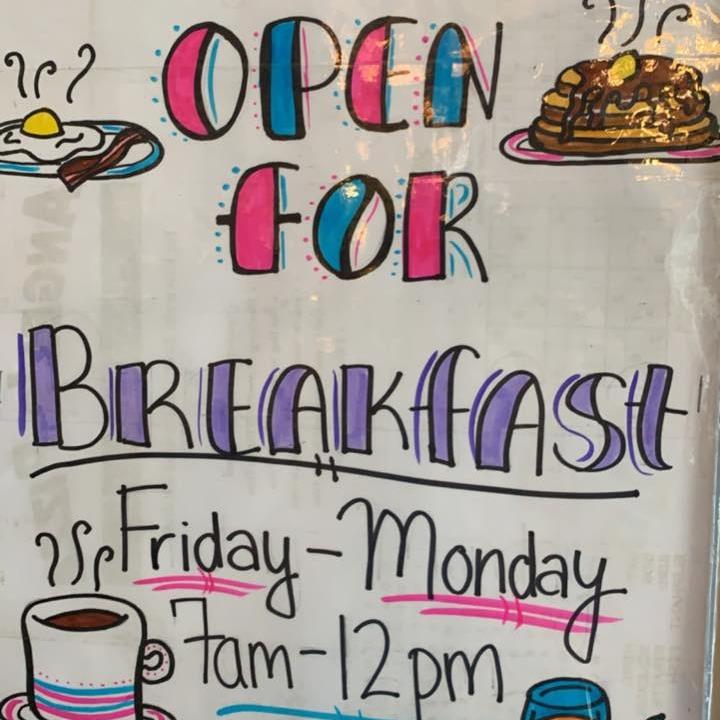 OPEN
FOR
BREAKFASt
Friday - Monday
7am - 12pm